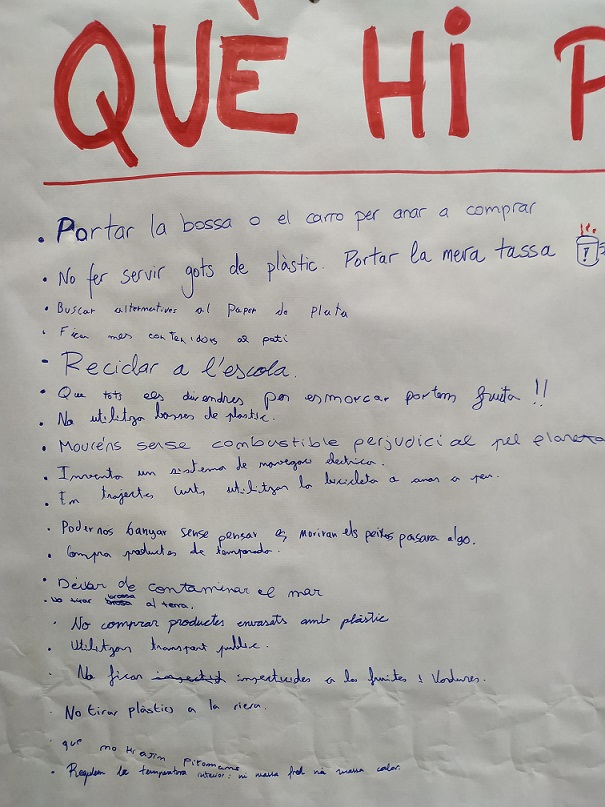 QUÈ HI P
• Portar la bossa o el carro per anar a comprar
• No fer servir gots de plàstic. Portar la meva tassa
• Buscar alternatives al paper de plata
• Ficar mes contenidors al pati
• Reciclar a l'escola.
• Que tots els divendres per esmorcar portem fruita !!
• No utilitza bosses de plastic.
• Mourens sense combustible perjudicial pel planeta
• Inventa un sistema de navegació electrica.
• En trajectes curts utilitzar la bicicleta o anar a peu.
• Podernos banyar sense pensar es moriran els peixos pasara algo.
• Compra productes de temporada.
• Deixar de contaminar el mar
• No tirar brossa al terra.
• No comprar productes envasats amb plàstic
• Utilitzar transport public.
• No ficar insecticides a les fruites i verdures.
• No tirar plàstics a la riera.
• que no hi agin Piromans
• Regulem la temperatura interior: ni massa fred ni massa calor.